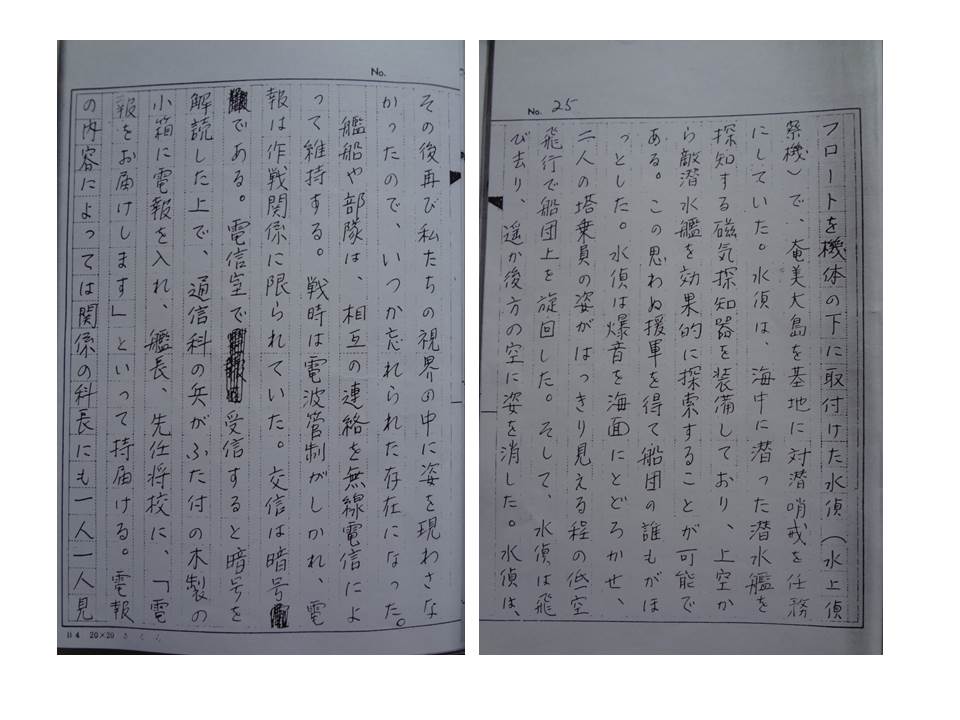 No. 25
フロートを機体の下に取付けた水偵（水上偵
察機）で、奄美大島を基地に対潜哨戒を任務
にしていた。水偵は、海中に潜った潜水艦を
探知する磁気探知器を装備しており、上空か
ら敵潜水艦を効果的に探索することが可能で
ある。この思わぬ援軍を得て船団の誰もがほ
っとした。水偵は爆音を海面にとどろかせ、
二人の塔乗員の姿がはっきり見える程の低空
飛行で船団上を旋回した。そして、水偵は飛
び去り、遥か後方の空に姿を消した。水偵は、
No.
その後再び私たちの視界の中に姿を現わさな
かったので、いつか忘れられた存在になった。
艦船や部隊は、相互の連絡を無線電信によ
って維持する。戦時は電波管制がしかれ、電
報は作戦関係に限られていた。交信は暗号
である。電信室で受信すると暗号を
解読した上で、通信科の兵がふた付の木製の
小箱に電報を入れ、艦長、先任将校に、「電
報をお届けします」といって持届ける。電報
の内容によっては関係の科長にも一人一人見
B4 20×20